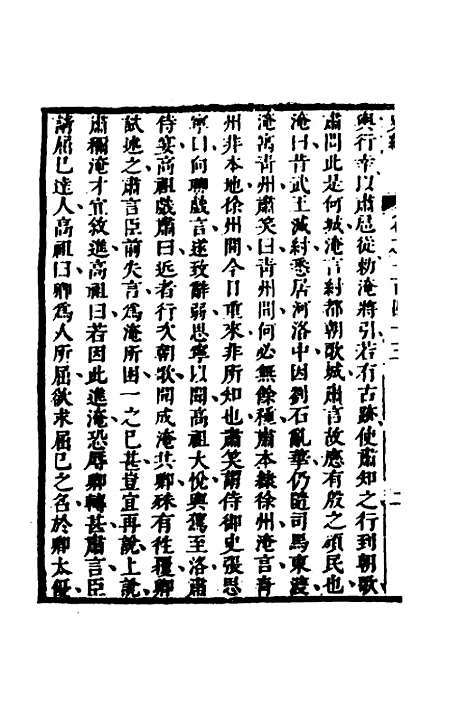 輿行幸以肅扈從勑淹將引若有古跡使肅知之行到朝歌
肅問此是何城淹言紂都朝歌城肅言故應有殷之頑民也
淹曰昔武王滅紂悉居河洛中因劉石亂華仍隨司馬東渡
淹寓青州肅笑曰青州間何必無餘種肅本隸徐州淹言青
州非本地徐州間今日重來非所知也肅笑謂侍御史張思
寧曰向聊戲言遂致辭弱思寧以聞高祖大悅輿駕至洛肅
侍宴高祖戲肅曰近者行次朝歌聞成淹共卿殊有往復卿
試述之肅言臣前失言爲淹所困一之已甚豈宜再說上說
肅稱淹才宜敘進高祖曰若因此進淹恐辱卿轉甚肅言臣
請屈已達人高祖曰卿爲人所屈欲求屈已之名於卿太優